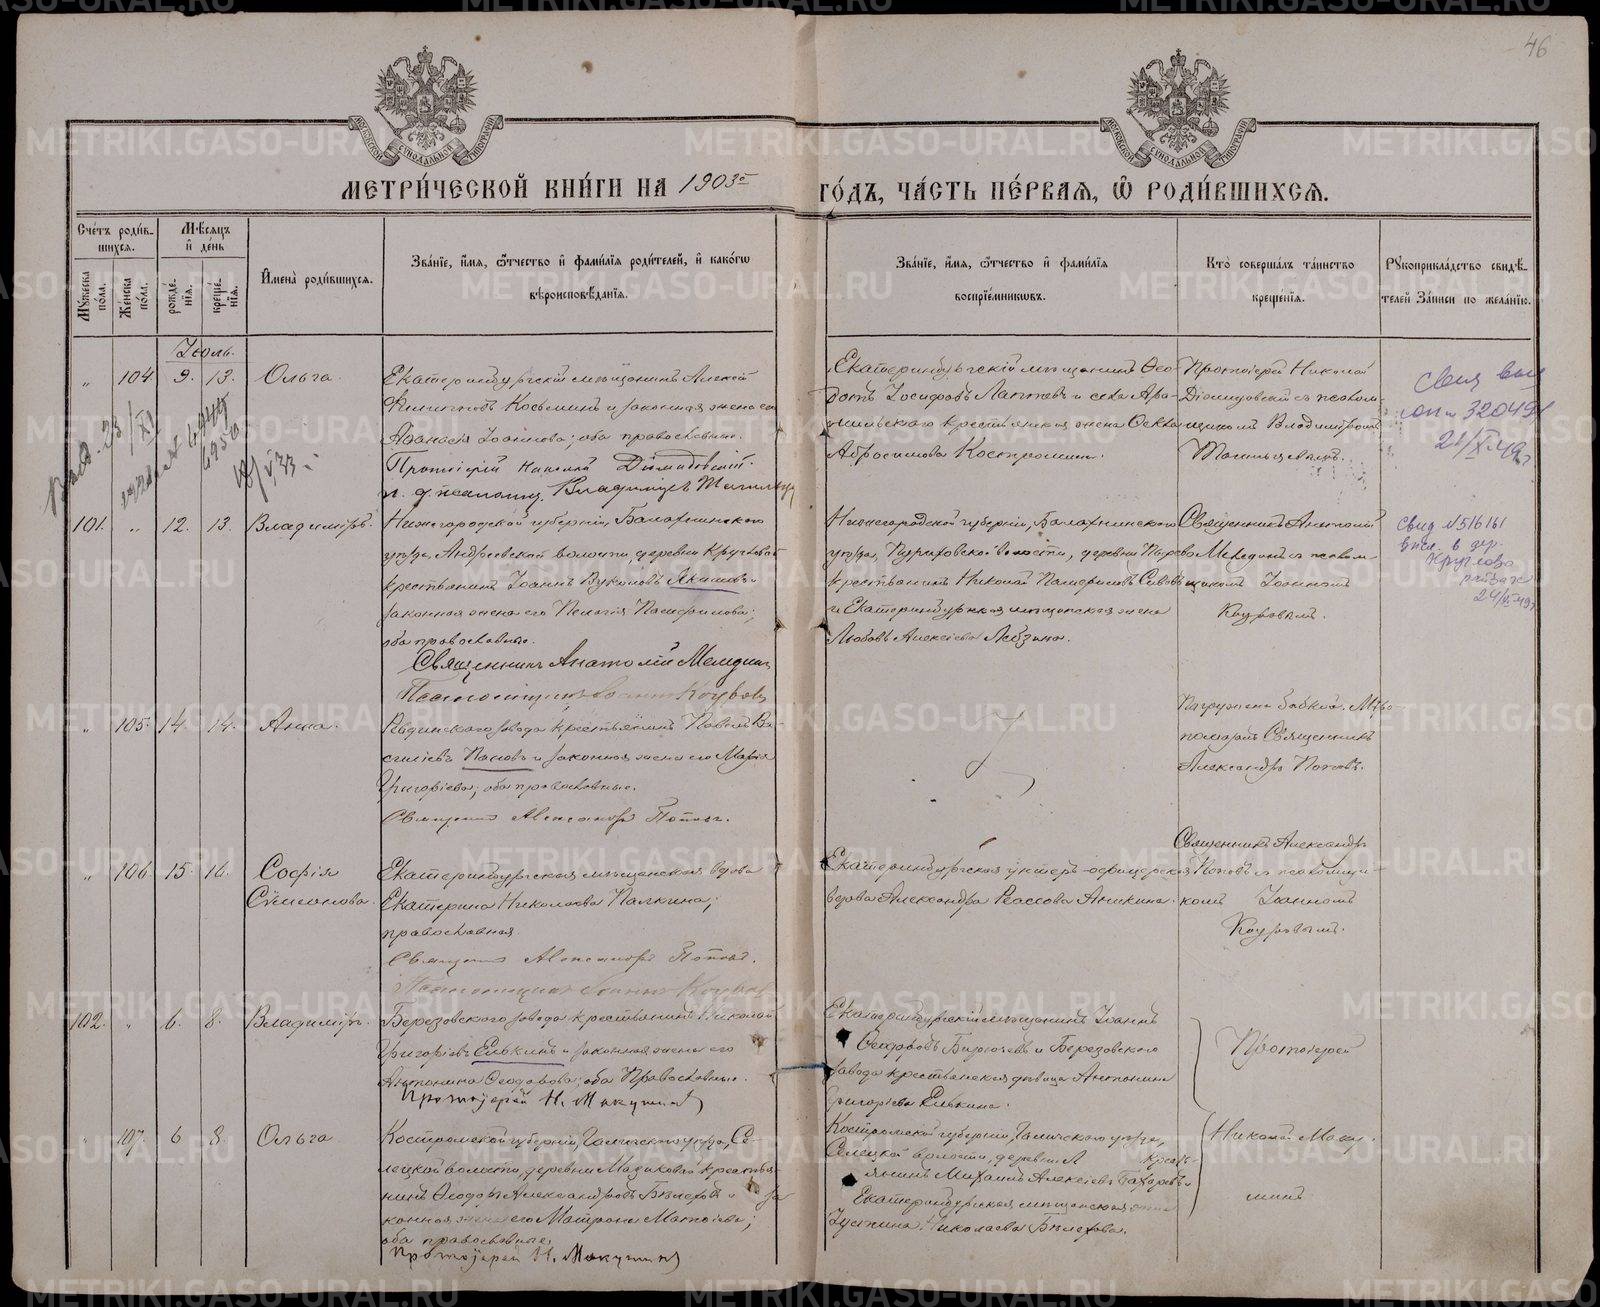 46
МЕТРИ́ЧЕСКОЙ КНИ́ГИ НА 1903й
ГО́ДЪ, ЧА́СТЬ ПЕ́РВАЯ, Ѿ РОДИ́ВШИХСЯ.
Сче́тъ роди́вшихся.
Мѣ́сяцъ и де́нь
Имена̀ роди́вшихся.
Зва́нїе, и́мя, ѻ́тчество и фами́лїя роди́телей, и како́гѡ
вѣроисповѣ́данїя.
Зва́нїе, и́мя, ѻ́тчество и фами́лїя
воспрїе́мниковъ.
Кто̀ соверша́лъ та́инство
креще́нїя.
Рꙋкоприкла́дство свидѣ́-
телей за́писи по жела́нїю.
Мꙋ́жеска по́ла.
Же́нска по́ла.
рожде́нїя.
креще́нїя.
Іюль.
" 104. 9. 13. Ольга.
Екатеринбургскій мѣщанинъ Алексій
Филипповъ Косьминъ и законная жена его
Афанасія Іоакимова; оба православные.
Протоіерей Николай Діомидовскій.
Владиміръ
Екатеринбургскій мѣщанинъ Ѳео-
дотъ Іосифовъ Лаптевъ и села Ара-
мильскаго крестьянская жена Ѳекла
Абросимова Костромина.
Протоіерей Николай
Діомидовскій съ псалом-
щикомъ Владиміромъ
320491
101. " 12. 13. Владиміръ.
Нижегородской губерніи, Балахнинскаго
уѣзда, Андреевской волости, деревни Кругловой
крестьянинъ Іоаннъ Вуколовъ Якимовъ и
законная жена его Пелагія Памфилова;
оба православные.
Священникъ Анатолій Меледин
Псаломщикъ Іоаннъ Коуровъ
Нижегородской губерніи, Балахнинскаго
уѣзда, волости, деревни
крестьянинъ Николай Памфиловъ
и Екатеринбургская мѣщанская жена
Любовь Алексіева Лебзина.
Священникъ Анатолій
Мелединъ съ псалом-
щикомъ Іоанномъ
Коуровымъ.
Свид №516161
в дер.
Круглово
" 105. 14. 14. Анна.
Ревдинскаго завода крестьянинъ Павелъ Ва-
силіевъ Пановъ и законная жена его Марія
Григоріева; оба православные.
Священникъ Александръ Поповъ.
Погружена бабкой. Мѵро-
помазалъ Священникъ
Александръ Поповъ.
" 106. 15. 16. Софія
Сѵмеонова.
Екатеринбургская мѣщанская вдова
Екатерина Николаева Палкина;
православная.
Священникъ Александръ Поповъ.
Псаломщикъ Іоаннъ Коуровъ
Екатеринбургская унтеръ-офицерская
вдова Александра Аникина.
Священникъ Александръ
Поповъ съ псаломщи-
комъ Іоанномъ
Коуровымъ.
102. " 6. 8. Владиміръ.
Березовскаго завода крестьянинъ Николай
Григоріевъ Елькинъ и законная жена его
Антонина Ѳеодорова; оба Православные.
Протоіерей Н. Макушинъ
Екатеринбургскій мѣщанинъ Іоаннъ
Ѳеодоровъ и Березовскаго
завода крестьянская дѣвица Антонина
Григоріева Елькина.
Протоіерей
" 107. 6 8 Ольга
Костромской губерніи, Галичскаго уѣзда, Се-
лецкой волости, деревни крестья-
нинъ Ѳеодоръ Александровъ Бѣлеховъ и за-
конная жена его Матрона Матѳіева;
оба православные.
Протоіерей Н. Макушинъ
Костромской губерніи, Галичскаго уѣзда,
Селецкой волости, деревни кресть-
янинъ Михаилъ Алексіевъ и
Екатеринбургская мѣщанская жена
Іустина Николаева Бѣлехова.
Николай Маку-
шинъ
METRIKI.GASO-URAL.RU